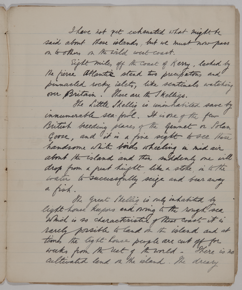 I have not yet exhausted what might be
said about these islands, but we must now pass
on to others on the wild west coast.
Eight miles off the coast of Kerry, lashed by
the fierce Atlantic stand two precipitous and
pinnacled rocky islets, like sentinels watching
over Britain. These are the Skelligs.
The Little Skellig is uninhabited save by
innumerable sea fowl. It is one of the few
British breeding places of the Gannet or Solan
Goose, and it is a fine sight to see these
handsome white birds wheeling in mid air
about the island and then suddenly one will
drop from a great height like a stone in the
water to successfully seize and bear away
a fish.
The Great Skellig is only inhabited by
light house keepers and owing to the rough sea
which is so characteristic of the west coast it is
rarely possible to land on the island and at
times the light house people are cut off for
weeks from the rest of the world. There is no
cultivated land on the island. The dreary